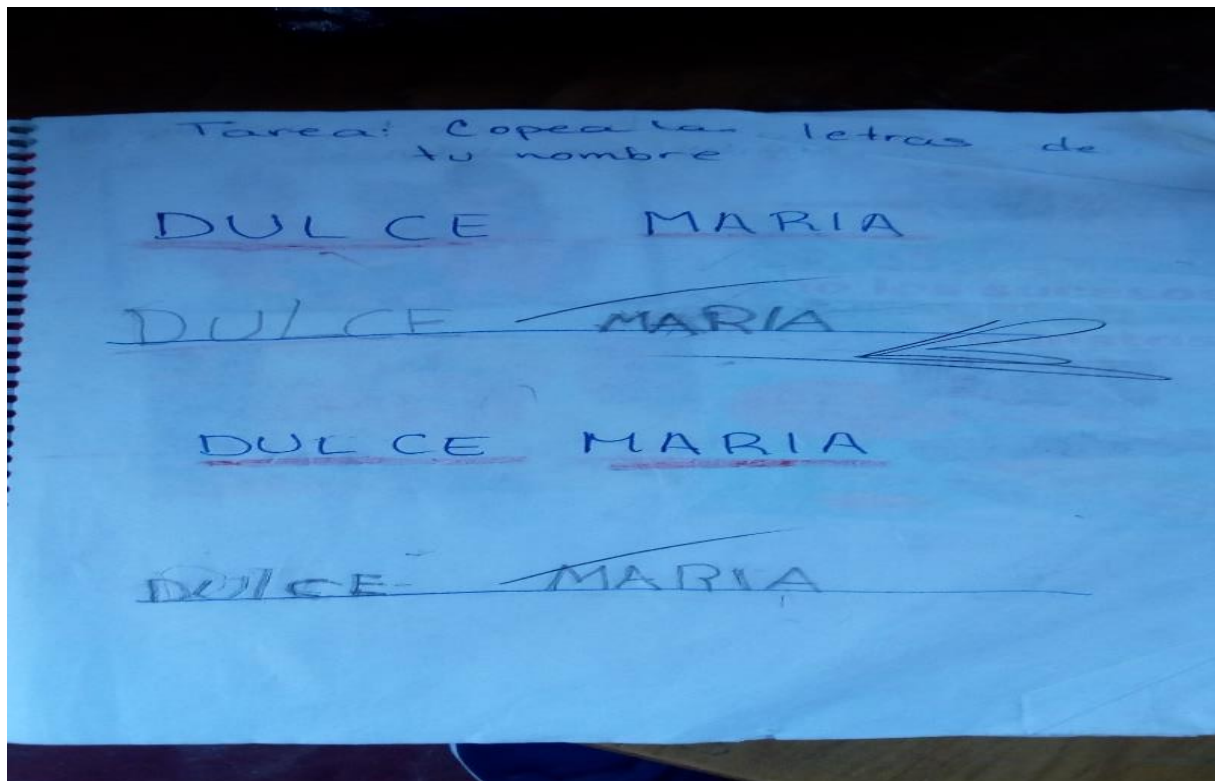 Tarea: Copea la letras de
tu nombre
DULCE MARIA
DULCE MARIA
DULCE MARIA
DULCE MARIA